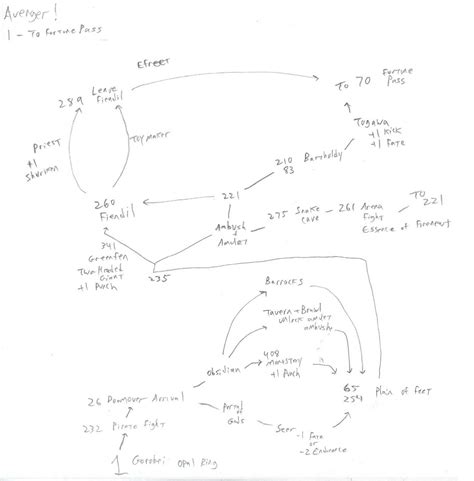 Avenger!
1 - To Fortune Pass
Efreet
289 Leave
Fiendil
To 70 Fortune
Pass
Priest
+1
Shuriken
Toymaker
Togawa
+1 Kick
+1 Fate
210 Bartholdy
83
260
Fiendil
221
Ambush
+
Amulet
275 Snake
Cave
261 Arena
Fight
Essence of
To
221
341
Greenfen
Two Headed
Giant
+1 Punch
235
Barracks
Tavern + Brawl
unlock amulet
ambush
Obsidian
408
Monastery
+1 Punch
65
254
Plain of Feet
26 Doomover Arrival
Portal of
Gods
Seer
-1 Fate
or
-2 Endurance
232 Pirate Fight
1 Gorobei Opal Ring